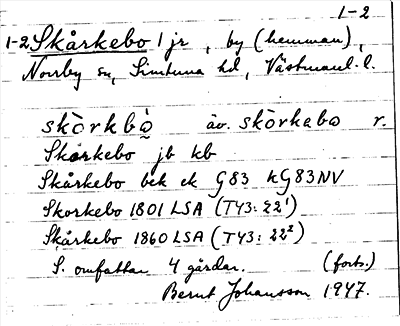 1-2
1-2 Skårkebo 1 jr, by (hemman),
Norrby sn, Simtuna hd, Västmanl. l.
skò̀rkbò̰ äv. skòrkabo r.
Skårkebo jb kb
Skårkebo bek ek G83 kG83NV
Skorkebo 1801 LSA (T43: 22¹)
Skårkebo 1860 LSA (T43: 22²)
S. omfattar 4 gårdar. (forts.)
Bernt Johansson 1947.